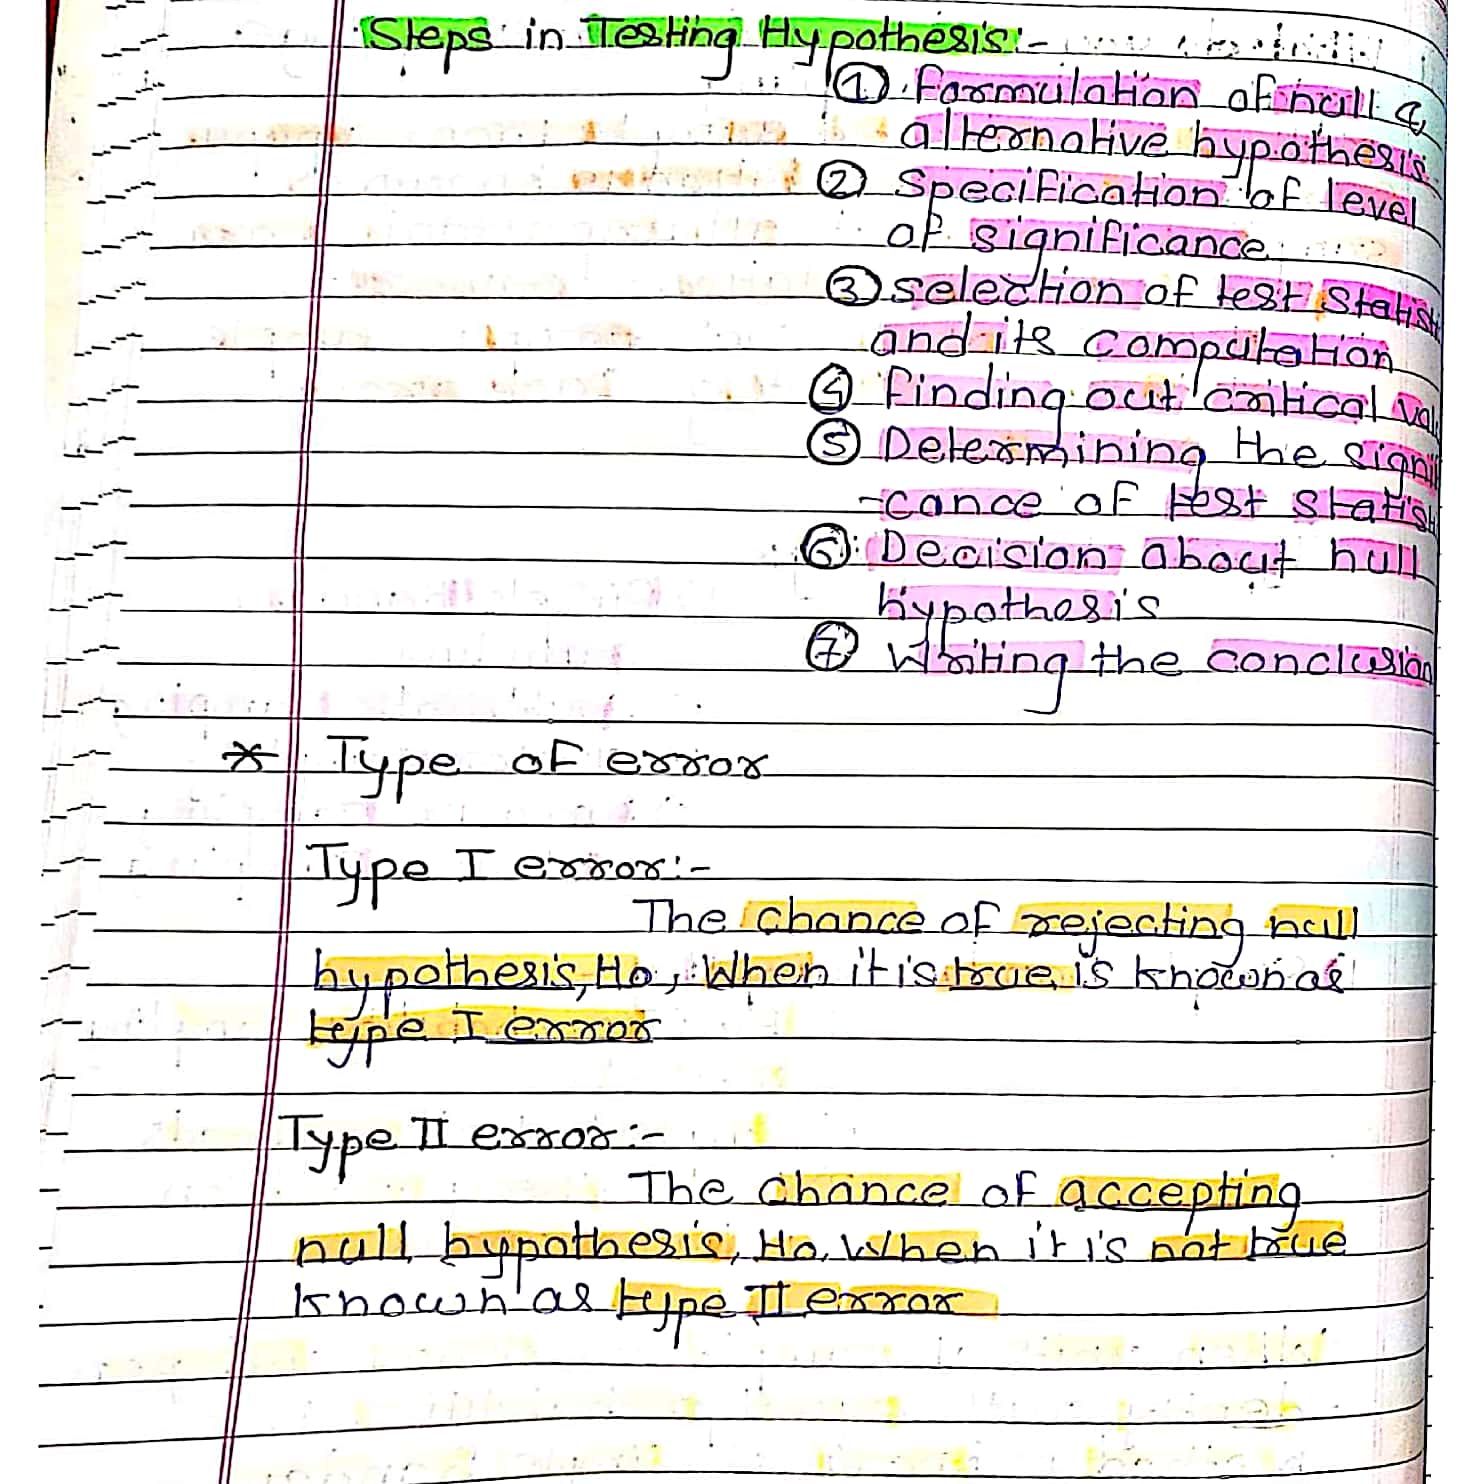 Steps in Testing Hypothesis:-
① Formulation of null &
alternative hypothesis
② Specification of level
of significance
③ Selection of test Statist
and its Computation
④ Finding out critical val
⑤ Determining the signifi
-cance of test Statist
⑥ Decision about null
hypothesis
⑦ Writing the conclusion
* Type of error
Type I error:-
The chance of rejecting null
hypothesis, Ho, When it is true, is known as
type I error
Type II error:-
The chance of accepting
null hypothesis, Ho, When it is not true
known as type II error